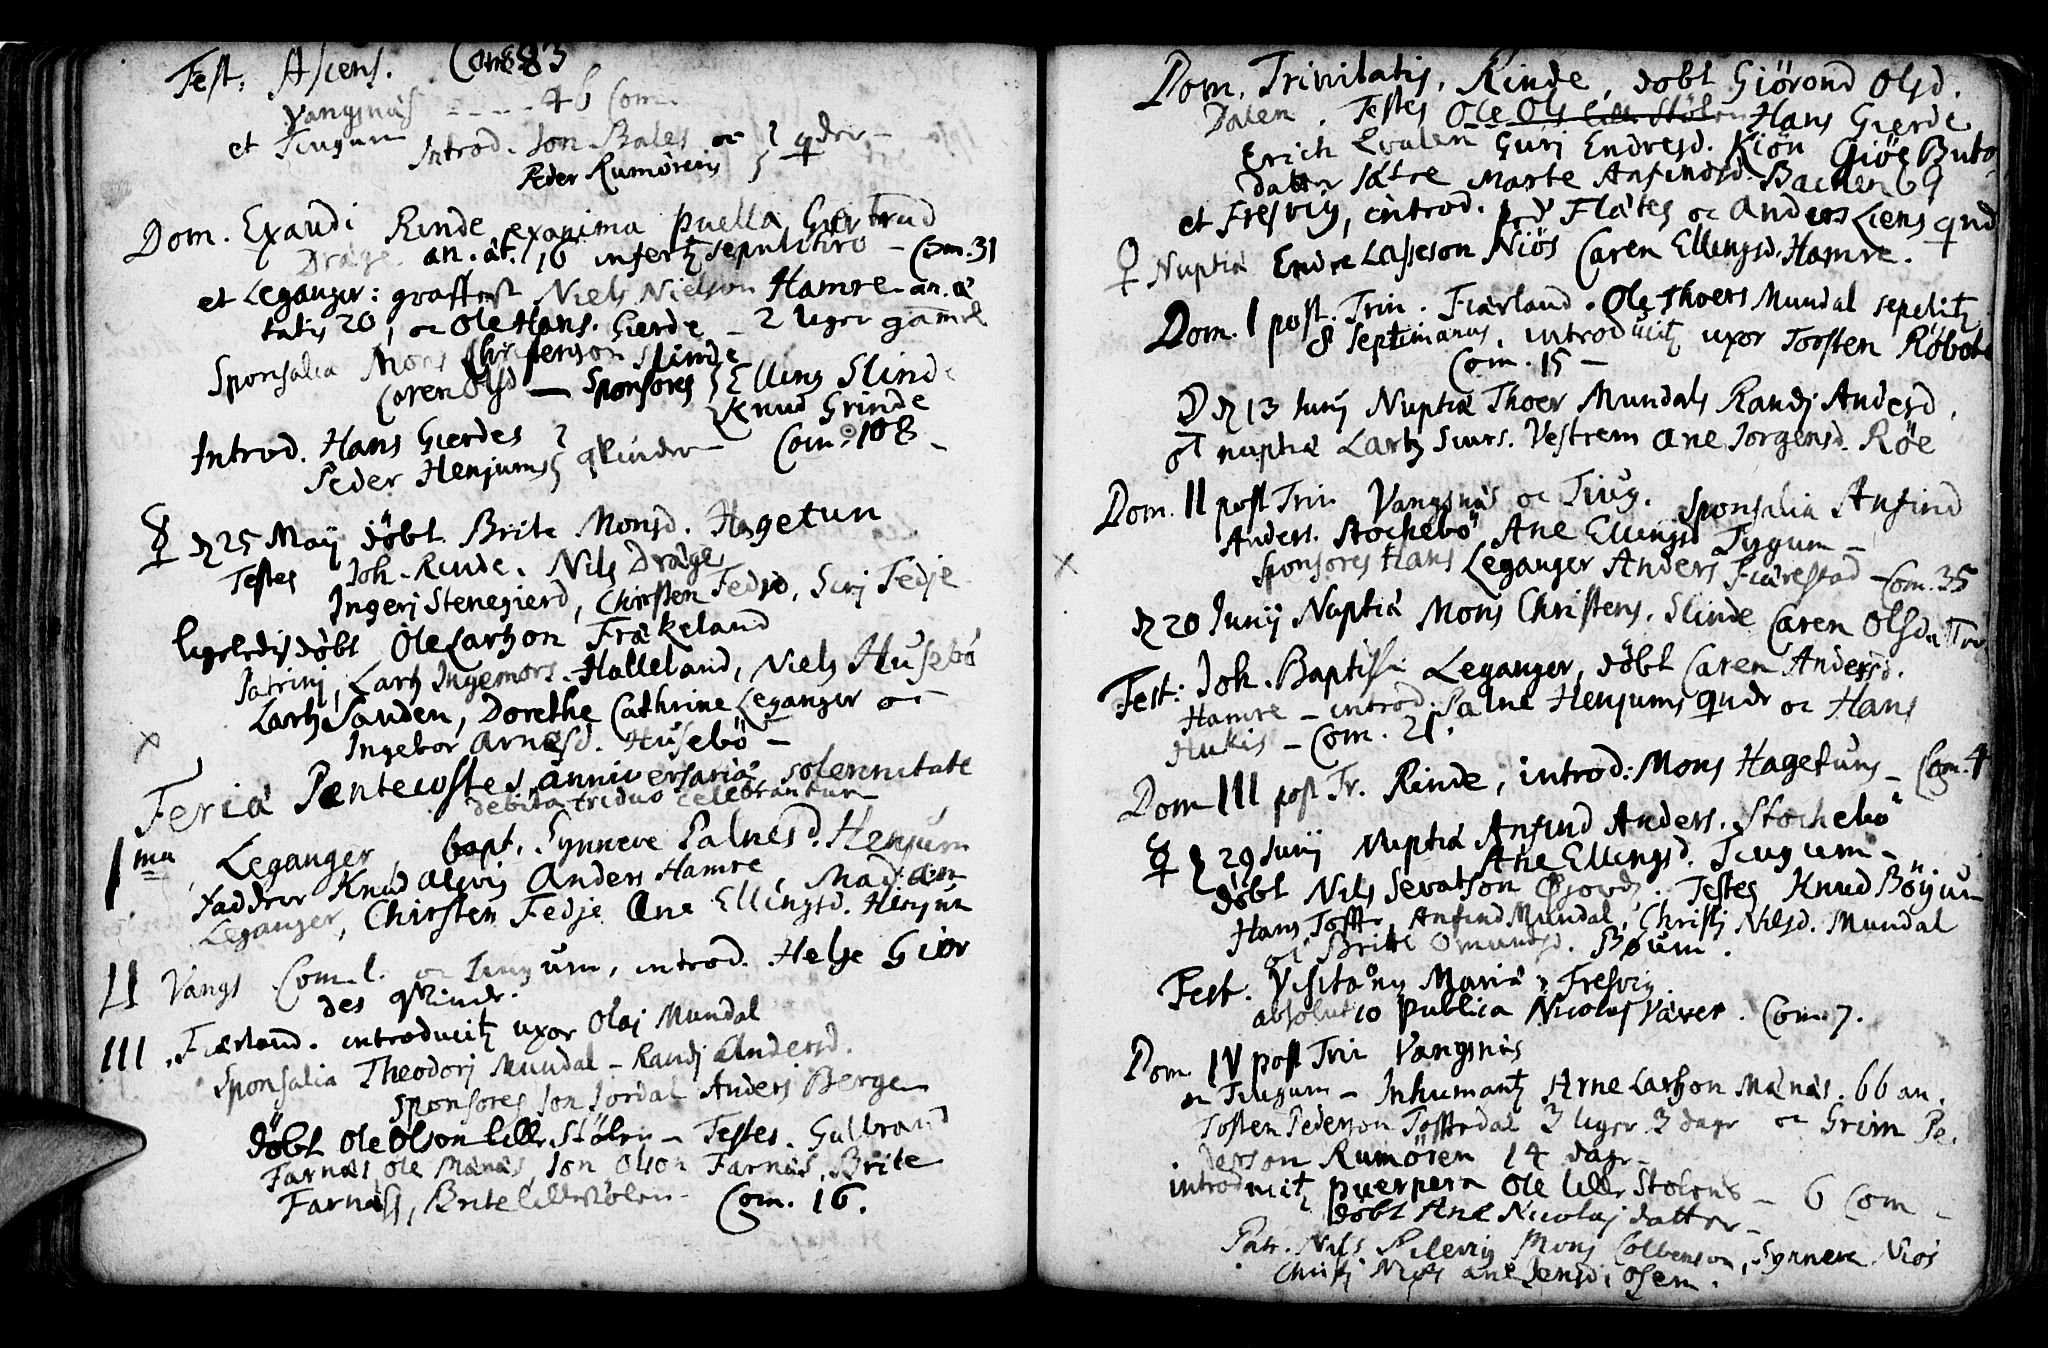 Fest. Ascens. Com 83
Vangsnäs ---- 46 Com.
et Tiugum
Introd. Jon Bales oc
Peder Rumørens
Dom. Exaudi Rinde exanima puella Giertrud
Dräge an. ät. 16 infertz sepulchro – Com. 31
et Leganger: graffest Niels Nielson Hamre an. æ
tatis 20, oc Ole Hans. Gierde – 2 uger gamel
Sponsalia Mons Christenson Slinde
Caren Olsd — Sponsores Elling Slinde
Knud Grinde
Introd. Hans Gierdes
Peder Henjums qvinder – Com. 108 –
☿ d 25 Maij döbt Brite Monsd. Hagetun
Testes Joh. Rinde. Nils Dräge
Ingerj Stenegierd, Christen Fedje, Surj Fedje
ligeledis döbt Ole Larhson Frækeland
Patrinj, Larh Ingemors. Halleland, Niels Husebö
Larh Sanden, Dorethe Cathrine Leganger oc
Ingebor Arnesd. Husebö –
Feria Pentecostes anniversaria, solennitate
debita triduo celebrantur
I ma, Leganger, bapt. Synneve Palnesd. Henjum
Faddrer Knud Alsvig Anders Hamre, Mad: An
Leganger, Chirsten Fedje Ane Ellingsd. Henjum
II Vangs Com 1. oc Tiugum, introd. Helje Giør
des qvinde.
III. Fiærland. introducitz uxor Olaj Mundal
Sponsalia Theodorj Mundal – Randj Andersd.
Sponsores Jon Jordal Anders Berge
döbt Ole Olson lille Stølen – Testes. Gulbrand
Farnæs, Ole Mänäs, Jon Olson Farnäs, Brite
Farnäs, Brite lillestølen – Com. 16.
Dom. Trinitatis, Rinde, döbt Giörond Olsd.
Dalen. Testes Ole Ols lille Stølen Hans Gierde
Erich Gurj Endresd.
datter Sätre Marte Anfindsd.
et Fresvig, introd. Flätes oc Anders Liens qvnd
♀ Nuptiä Endre Lasseson Niös Caren Ellingsd. Hamre.
Dom. I post. Trin. Fiærland. Ole Thoers Mundal sepelitz
8 septimanus, introducitz uxor Torsten Røbote
Com. 15 –
☽ d 13 Junij Nuptiæ Thoer Mundals Randj Andersd.
oc nuptiæ Larh Siurs. Vestrem Ane Jorgensd. Röe
Dom. II post Trin Vangsnäs oc Tiug. Sponsalia Anfind
Anders. Stochebö Ane Ellingsd Tygum –
Sponsores Hans Leganger Anders Fiærestad – Com. 35
d 20 Junij Nuptiä Mons Christens. Slinde Caren Olsdatter
Fest: Joh. Baptistæ Leganger, döbt Caren Andersd.
Hamre – introd. Palne Henjums qvndr oc Hans
Hukis – Com. 21.
Dom III post Tr. Rinde, introd: Mons Hagetuns – Com. 4
☿ d 29 Junij Nuptiä Anfind Anders. Stochebö
Ane Ellingsd. Tiugum –
döbt Nils Sevatson Testes Knud Böyum
Hans Tofte, Anfind Mundal, Christj Nilsd. Mundal
oc Brite Omundsd. Bøium.
Fest. Visitationis Mariä, Fresvig.
absolutio publica Nicolaj Väver. Com. 7.
Dom. IV post Trin Vangsnäs
oc Tiugum – Inhumantz Arne Larhson Mänäs. 66 an.
Tosten Pederson Tofftedal 3 uger 3 dage oc Grim Pe.
derson Rumören 14 dage –
introducitz puerpera Ole lille Stölens – 6 Com –
döbt Ane Nicolaj datter –
Patr. Nils Mons Colbenson, Synneve Niös
Christj Niös Ane Jensd. Osem.